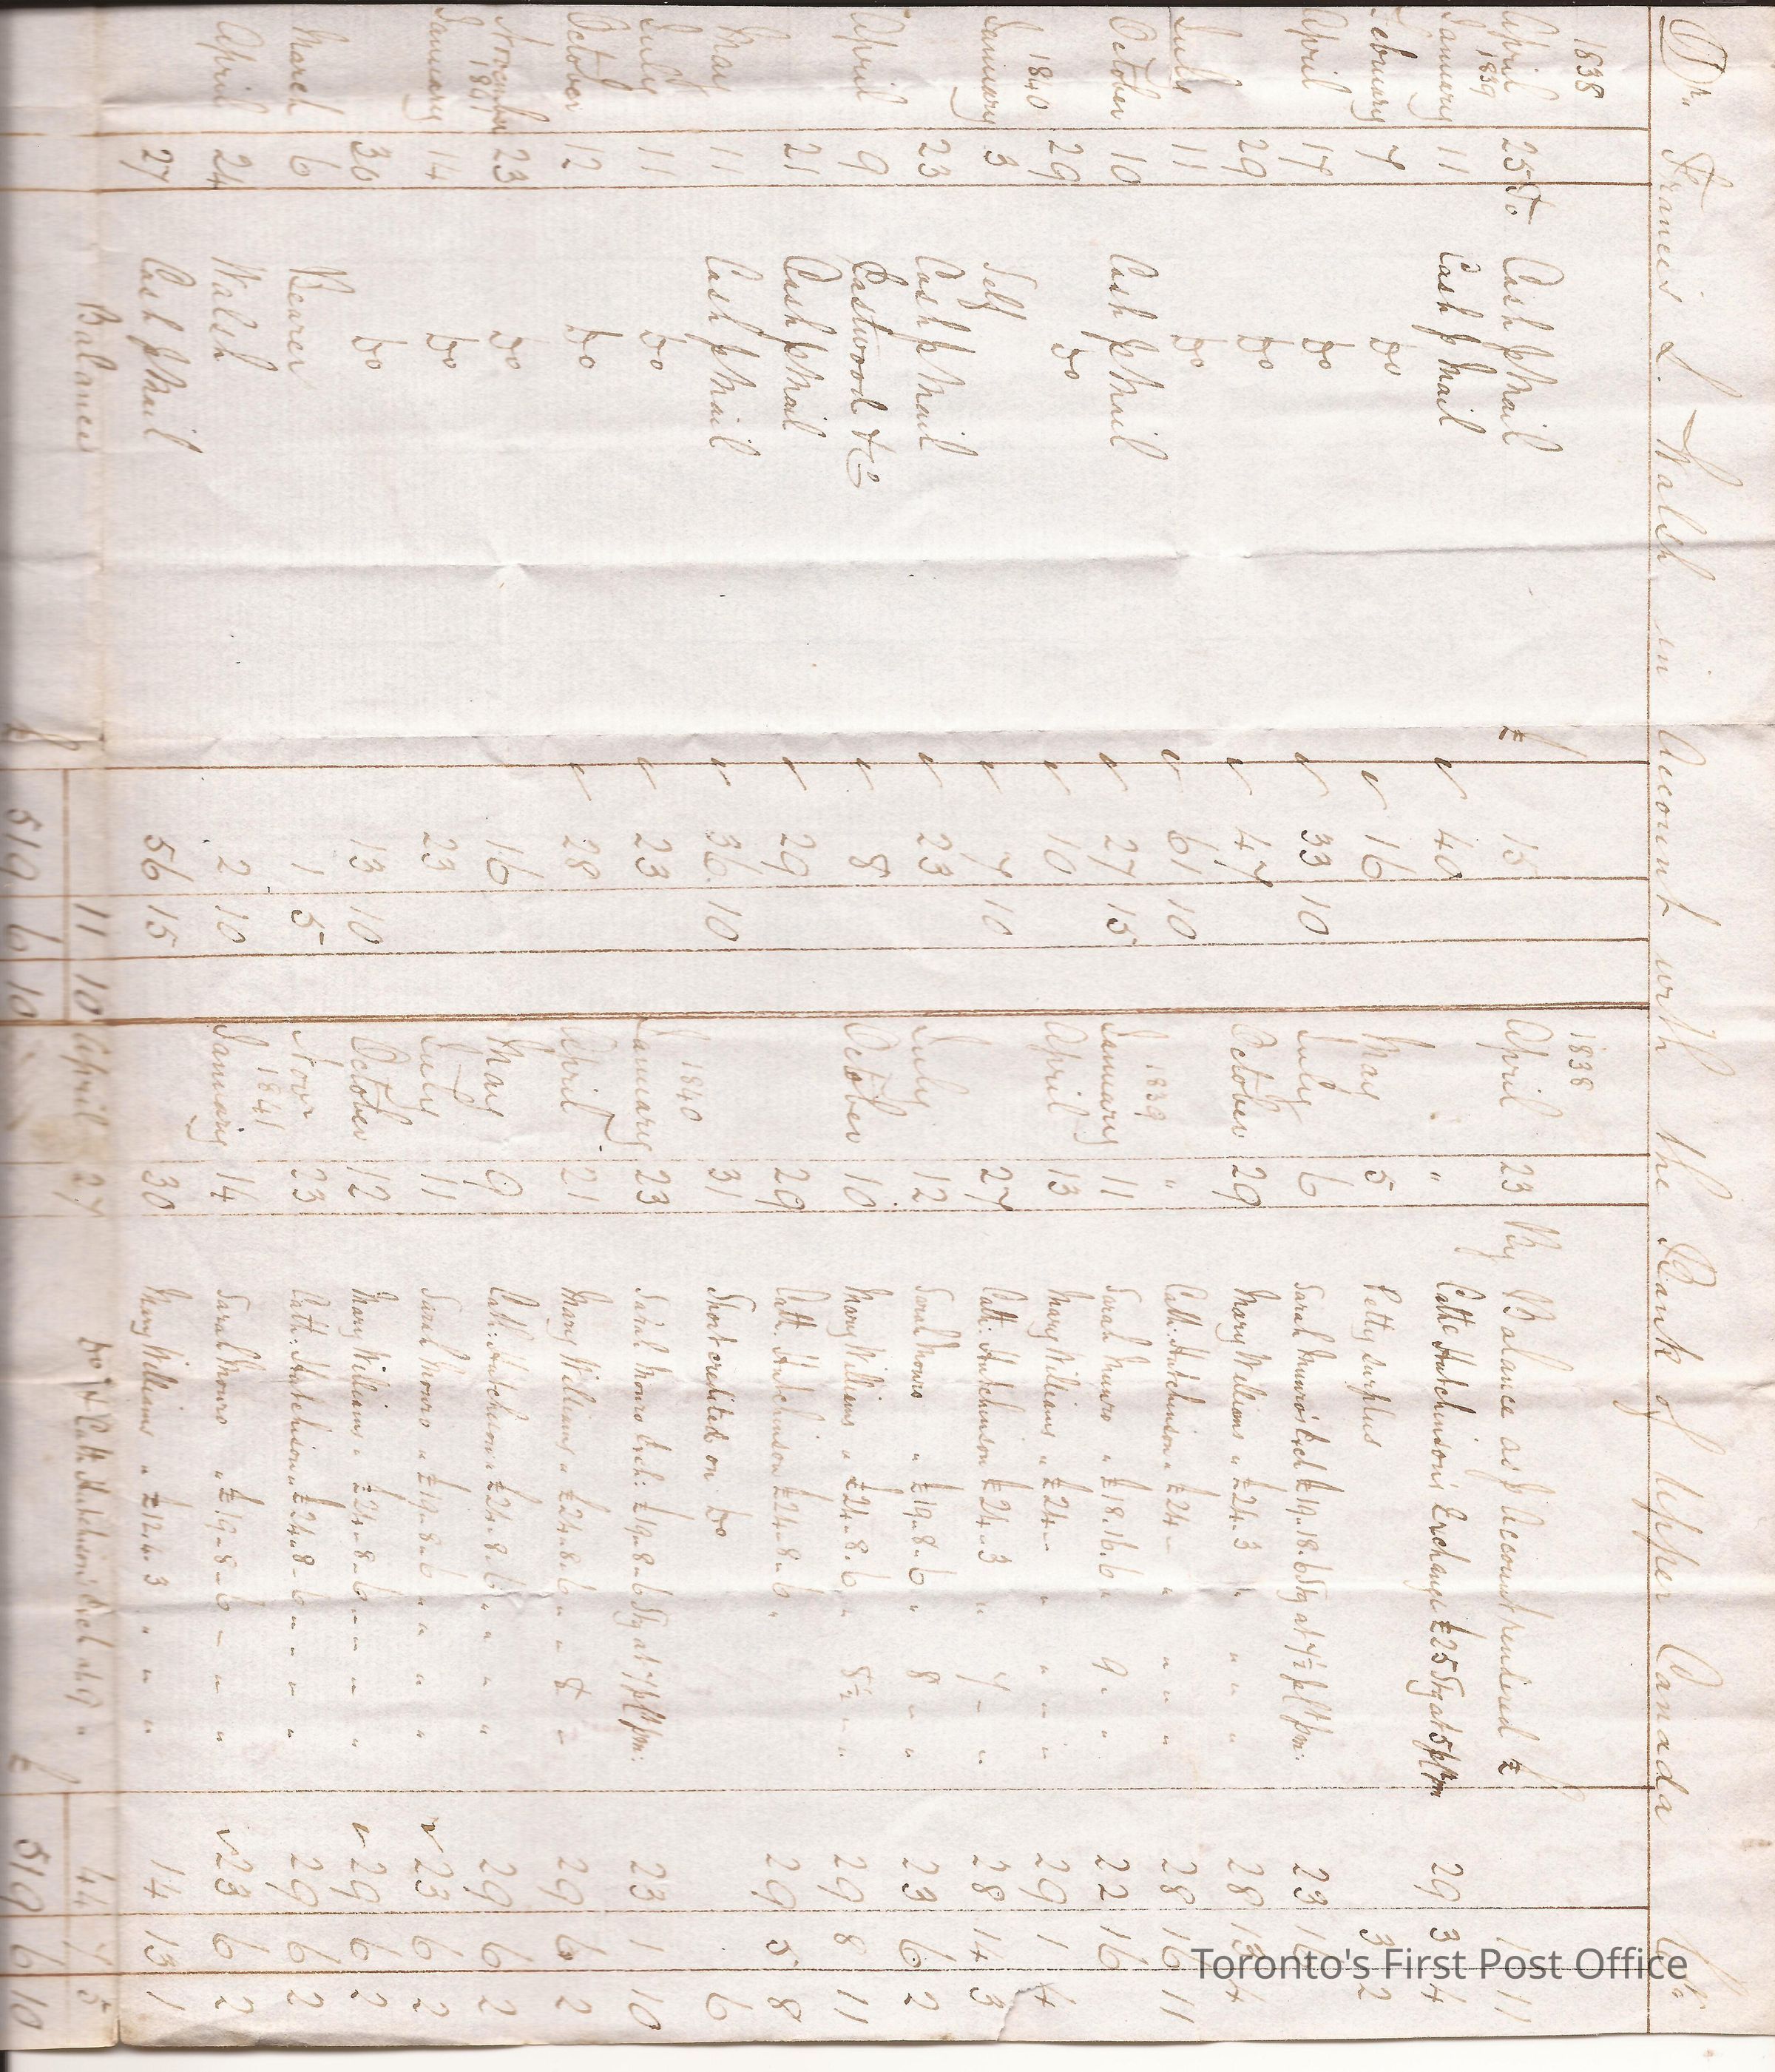 Dr. Francis L. Walsh in Account with the Bank of Upper Canada Cr.
1838
April 25 To Cash p Mail £ 15
1839
January 11 Cash p Mail 40
February 7 Do 16
April 17 Do 33 10
29 Do 47
July 11 Do 61 10
October 10 Cash p Mail 27 15
29 Do 10
1840
January 3 Self 7 10
23 Cash p Mail 23
April 9 Eastwood & Co 8
21 Cash p Mail 29
May 11 Cash p Mail 36 10
July 11 Do 23
October 12 Do 28
November 23 Do 16
1841
January 14 Do 23
30 Do 13 10
March 6 Bearer 1 5
April 24 Walsh 2 10
27 Cash p Mail 56 15
Balance 11 10
£ 519 6 10
1838
April 23 By Balance as p Account rendered £ 1 11
" " Cathe Hutchinson's Exchange £25 Stg at 5 p Ct pm 29 3 4
May 5 Petty surplus 3 2
July 6 Sarah Munro's Exch £19.18.6 Stg at 7½ p Ct pm: 23 16
October 29 Mary Williams " £24.3 " " " 28 13 4
" Cath: Hutchinson " £24 - " " " " 28 16 11
1839
January 11 Sarah Munro " £18.16.6 " 9 " " 22 16
April 13 Mary Williams " £24 - " " " " 29 1 4
27 Cath: Hutchinson £24.3 " 7 - " 28 14 3
July 12 Sarah Monro " £19.8.6 " 8 " " 23 6 2
October 10 Mary Williams " £24.8.6 " 8½ " " 29 8 11
29 Cath: Hutchinson £24.8.6 " 29 5 8
31 Short credited on Do 6
1840
January 23 Sarah Monro Exch: £19.8.6 Stg at 7 p Ct pm: 23 1 10
April 21 Mary Williams " £24.8.6 " " 8 " 29 6 2
May 9 Cath: Hutchinson " £24.8.6 " " " " 29 6 2
July 11 Sarah Monro " £19.8.6 " " " " 23 6 2
October 12 Mary Williams " £24.8.6 " " " " 29 6 2
Novr 23 Cath: Hutchinson " £24.8.6 " " " " 29 6 2
1841
January 14 Sarah Monro " £19.8.6 " " " 23 6 2
30 Mary Williams " £12.4.3 " " " 14 13 1
April 27 Do & Cath Hutchinson's Exch at 9 " 44 7 5
£ 519 6 10
Toronto's First Post Office